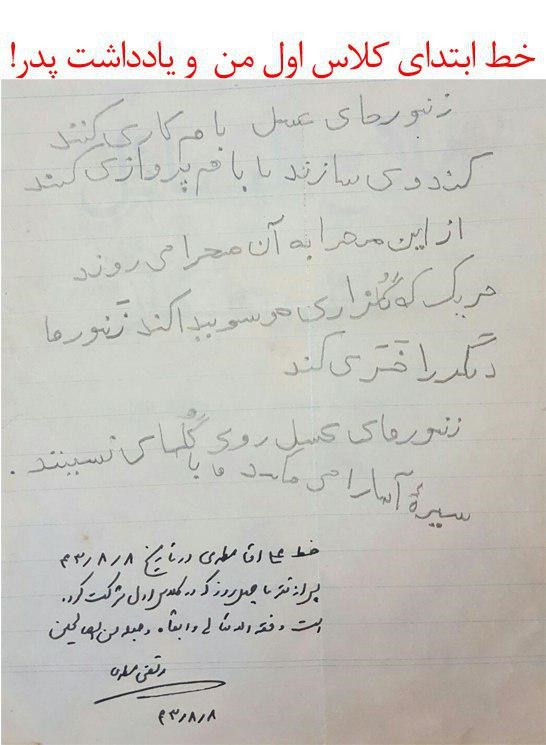 خط ابتدای کلاس اول من و یادداشت پدر!
زنبورهای عسل با هم کار می کنند
کندو می سازند با هم پرواز می کنند
از این صحرا به آن صحرا می روند
هر یک که گلزاری خوسو پیدا کند زنبورها
دیگر را خبر می کند
زنبورهای عسل روی گلهای نسینند .
سیرهٔ آنها را می مکند
خط علی اقا مطهری در تاریخ ۴۳/۸/۸
پس از تقریبا چهل روز که در کلاس اول شرکت کرد.
است وفقه الله تعالی وابقاه وجعله من الصالحین
مرتضی مطهری
۴۳/۸/۸